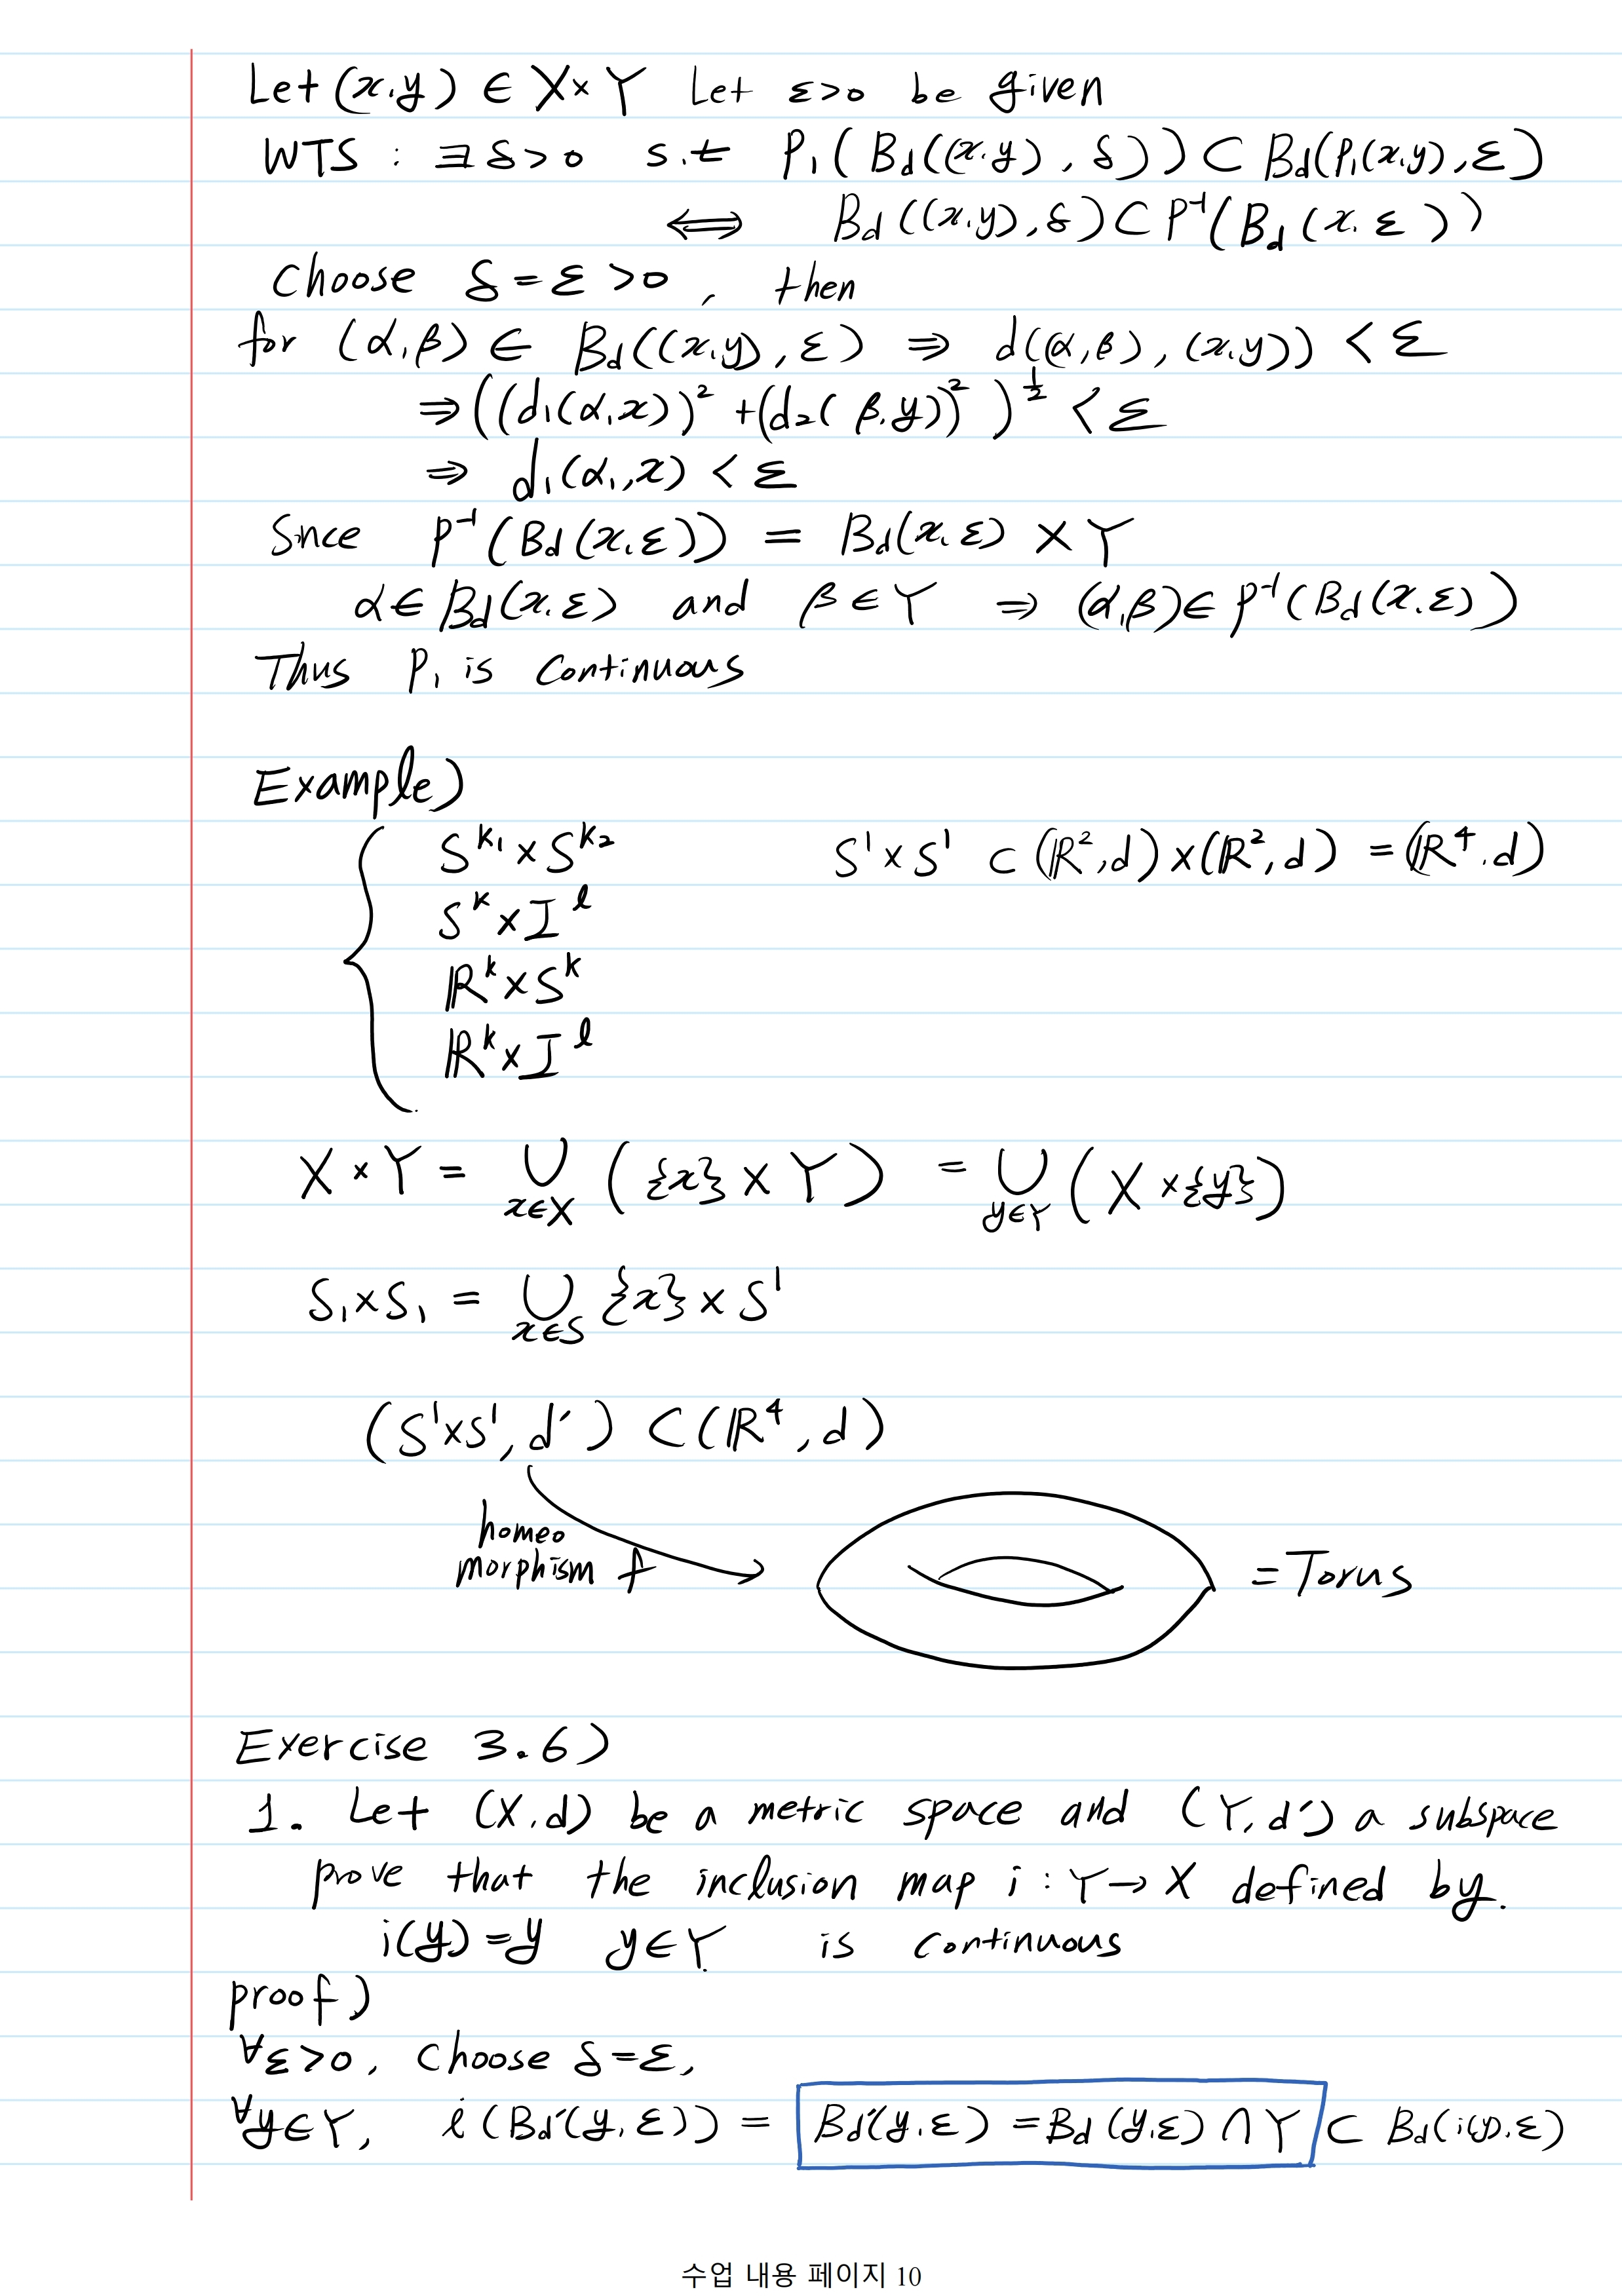 Let (x,y) ∈ X×Y Let ε>0 be given
WTS : ∃ δ>0 s.t P₁(B_d((x,y), δ)) ⊂ B_d(P₁(x,y), ε)
⟺ B_d((x,y), δ) ⊂ P⁻¹(B_d(x, ε))
Choose δ=ε>0, then
for (α,β) ∈ B_d((x,y), ε) ⇒ d((α,β), (x,y)) < ε
⇒ ((d₁(α,x))² + (d₂(β,y))²)^½ < ε
⇒ d₁(α,x) < ε
Snce P⁻¹(B_d(x,ε)) = B_d(x,ε) × Y
α∈B_d(x,ε) and β∈Y ⇒ (α,β)∈P⁻¹(B_d(x,ε))
Thus P₁ is continuous
Example)
S^k₁ × S^k₂ S¹×S¹ ⊂ (ℝ²,d)×(ℝ²,d) = (ℝ⁴,d)
S^k × I^l
ℝ^k × S^k
ℝ^k × I^l
X×Y = ⋃_{x∈X} ({x}×Y) = ⋃_{y∈Y} (X×{y})
S₁×S₁ = ⋃_{x∈S} {x}×S¹
(S¹×S¹, d′) ⊂ (ℝ⁴, d)
homeo
morphism f = Torus
Exercise 3.6)
1. Let (X,d) be a metric space and (Y,d′) a subspace
prove that the inclusion map i : Y→X defined by.
i(y)=y y∈Y is continuous
proof)
∀ε>0, choose δ=ε,
∀y∈Y, i(B_d′(y,ε)) = B_d′(y,ε) = B_d(y,ε) ∩ Y ⊂ B_d(i(y),ε)
수업 내용 페이지 10